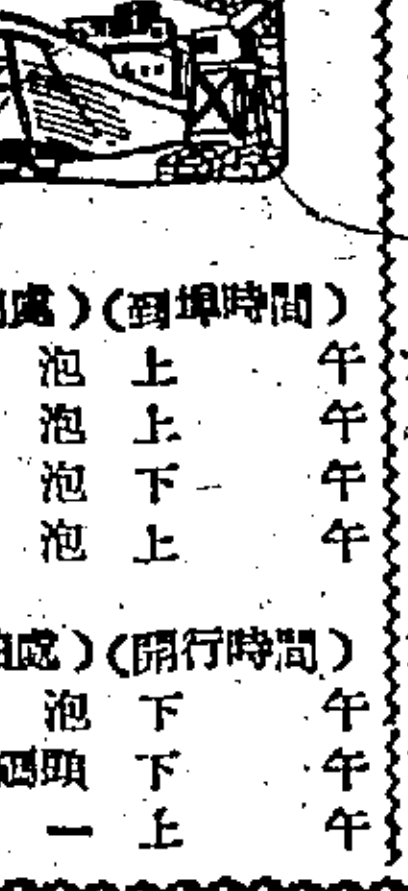 處)(到埠時間)
泡 上 午
泡 上 午
泡 下 午
泡 上 午
處)(開行時間)
泡 下 午
碼頭 下 午
一 上 午